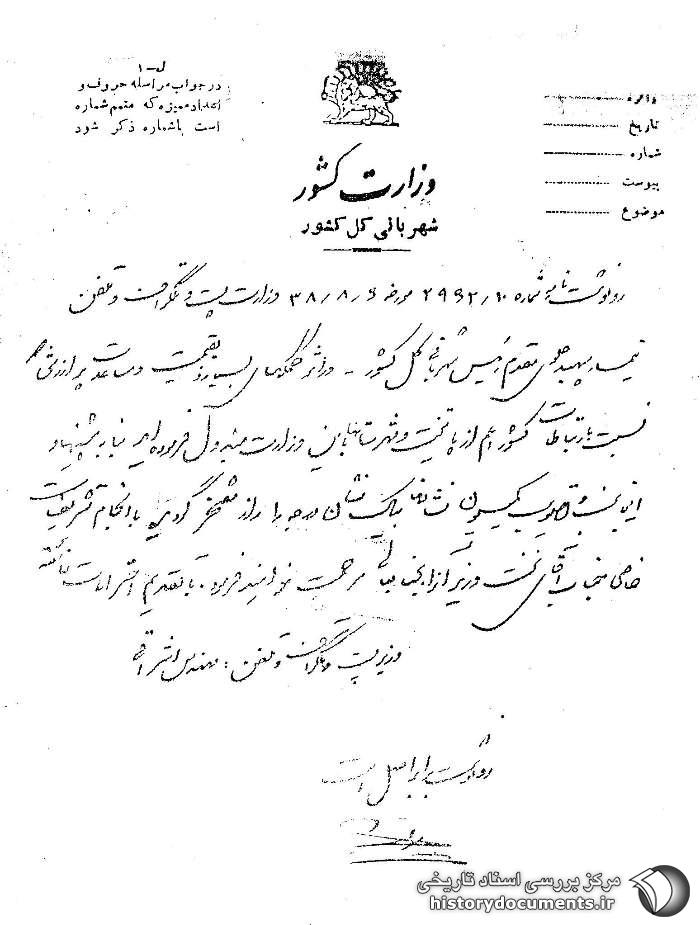 ل-۱
در جواب مراسله حروف و
اعداد ممیزه که متمم شماره
است با شماره ذکر شود
دائره
تاریخ
شماره
پیوست
موضوع
وزارت کشور
شهربانی کل کشور
رونوشت نامه شماره مورخه ۳۸/۸/۶ وزارت پست و تلگراف و تلفن
تیمسار سپهبد علوی مقدم رئیس شهربانی کل کشور - در اثر کمکهای بسیار ذیقیمت و مساعدت پر ارزشی که
نسبت بارتباطات کشور اعم از پایتخت و شهرستانها باین وزارت مبذول فرموده‌اید بنا به پیشنهاد
اینجانب و تصویب کمیسیون نشان بیک نشان درجه را از مفتخر گردیده با انجام تشریفات
خاصی جناب آقای نخست وزیر از اینجانب مرحمت خواهند فرمود. با تقدیم احترامات فائقه
وزیر پست و تلگراف و تلفن: مهندس اشراقی
رونوشت برابر اصل است
مرکز بررسی اسناد تاریخی
historydocuments.ir